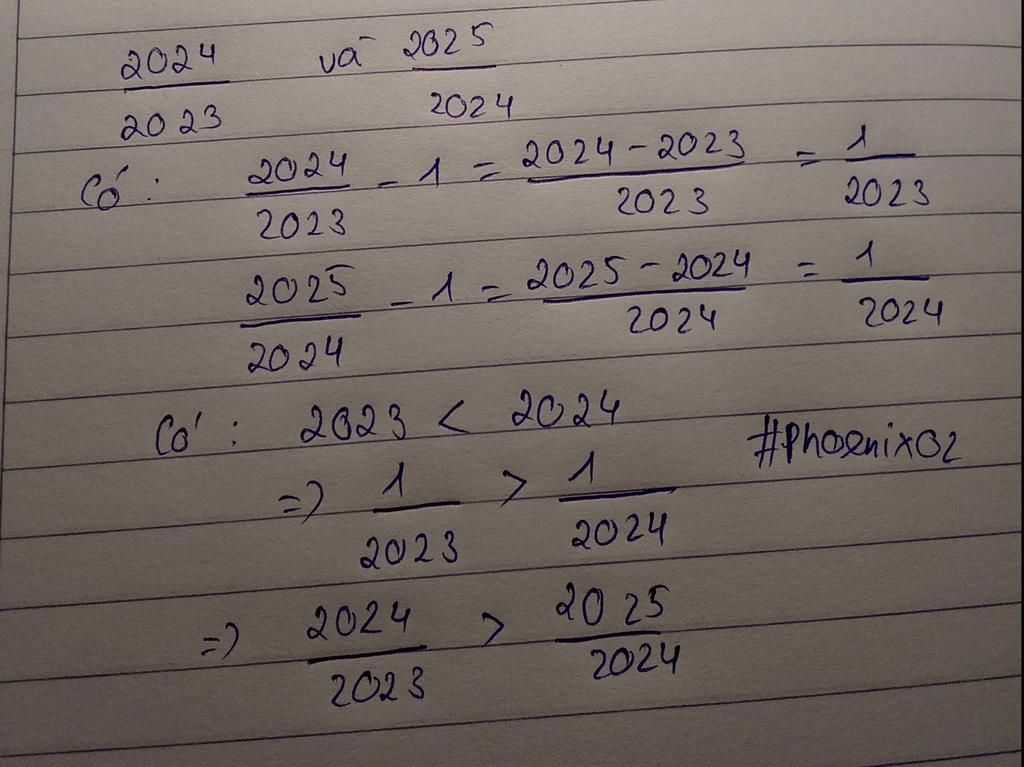 2024/2023 và 2025/2024
Có: 2024/2023 - 1 = (2024 - 2023)/2023 = 1/2023
2025/2024 - 1 = (2025 - 2024)/2024 = 1/2024
Có: 2023 < 2024
#Phoenix02
=> 1/2023 > 1/2024
=> 2024/2023 > 2025/2024